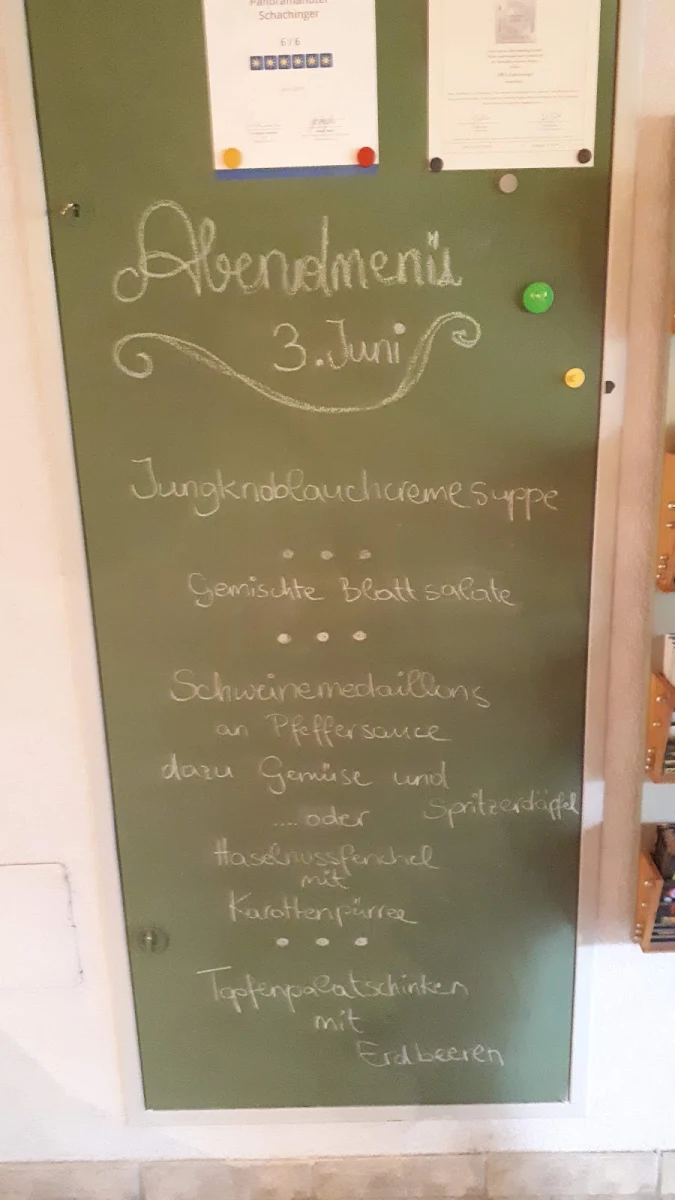 Panoramahotel
Schachinger
6 / 6
Abendmenü
3. Juni
Jungknoblauchcremesuppe
Gemischte Blattsalate
Schweinemedaillons
an Pfeffersauce
dazu Gemüse und
Spritzerdäpfel
.... oder
Haselnussfenchel
mit
Karottenpürree
Topfenpalatschinken
mit
Erdbeeren